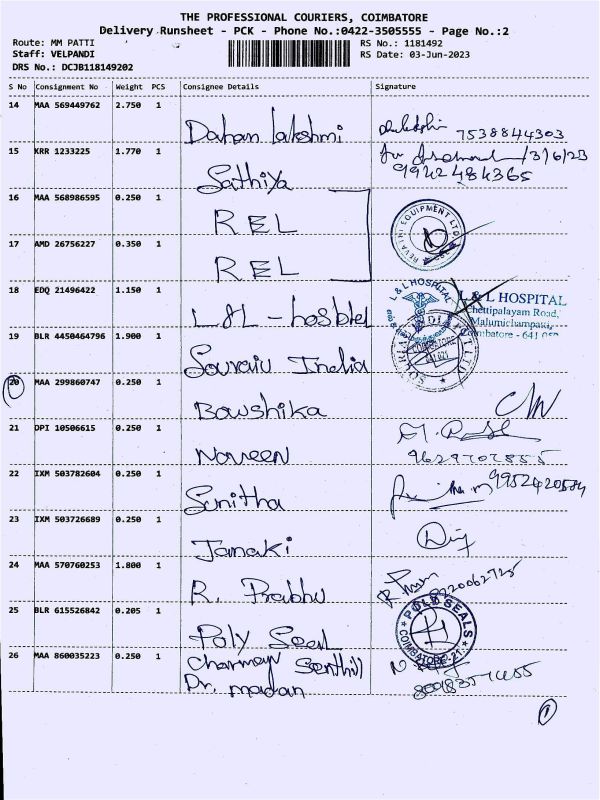 THE PROFESSIONAL COURIERS, COIMBATORE
Delivery Runsheet - PCK - Phone No.:0422-3505555 - Page No.:2
Route: MM PATTI
RS No.: 1181492
Staff: VELPANDI
RS Date: 03-Jun-2023
DRS No.: DCJB118149202
S No Consignment No Weight PCS Consignee Details Signature
14 MAA 569449762 2.750 1
Dahan lakshmi 7538844303
15 KRR 1233225 1.770 1
Sathiya 9942484365
16 MAA 568986595 0.250 1
REL
17 AMD 26756227 0.350 1
REL
EQUIPMENT
18 EDQ 21496422 1.150 1
L&L - hosbtel
L & L HOSPITAL
L & L HOSPITAL
Chettipalayam Road,
Malumichampatti,
Coimbatore - 641
19 BLR 4450464796 1.900 1
Souraiv India
COIMBATORE
641 021
20 MAA 299860747 0.250 1
Bowshika
21 DPI 10506615 0.250 1
Noveen 9629702855
22 IXM 503782604 0.250 1
Sunitha
23 IXM 503726689 0.250 1
Janaki
24 MAA 570760253 1.800 1
R. Prabhu
25 BLR 615526842 0.205 1
Poly Seal
POLD SEALS
COIMBATORE-21.
26 MAA 860035223 0.250 1
Charman Senthil
Dr. madan
1